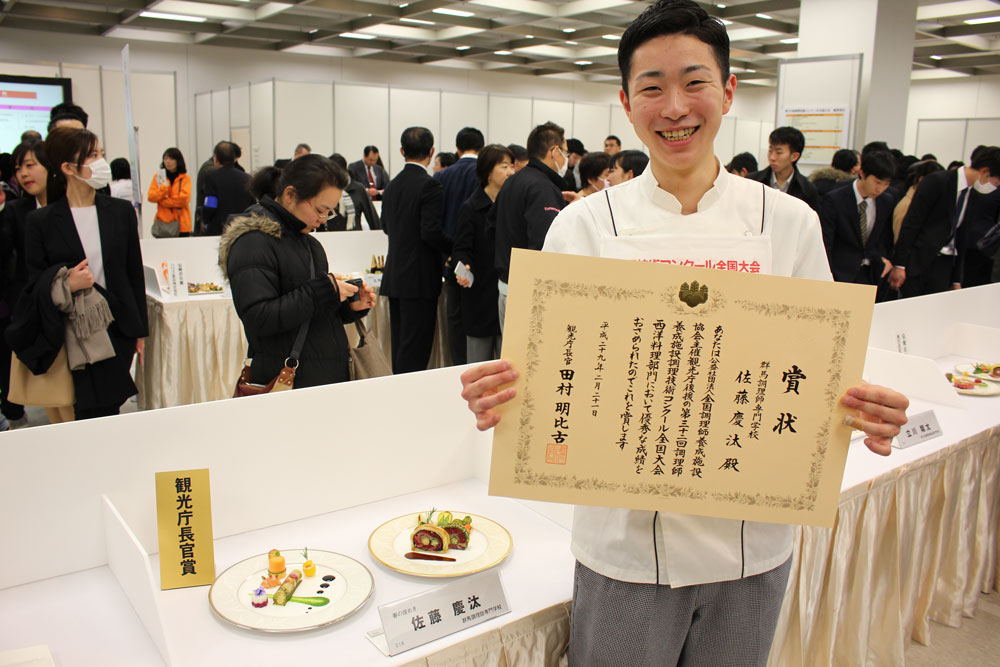 コンクール全国大会
賞状
群馬調理師専門学校
佐藤慶汰殿
あなたは公益社団法人全国調理師養成施設
協会主催観光庁後援の第三十二回調理師
養成施設調理技術コンクール全国大会
西洋料理部門において優秀な成績を
おさめられたのでこれを賞します
平成二十九年二月二十一日
観光庁長官 田村明比古
観光庁長官賞
佐藤 慶汰
群馬調理師専門学校
立川 雄大